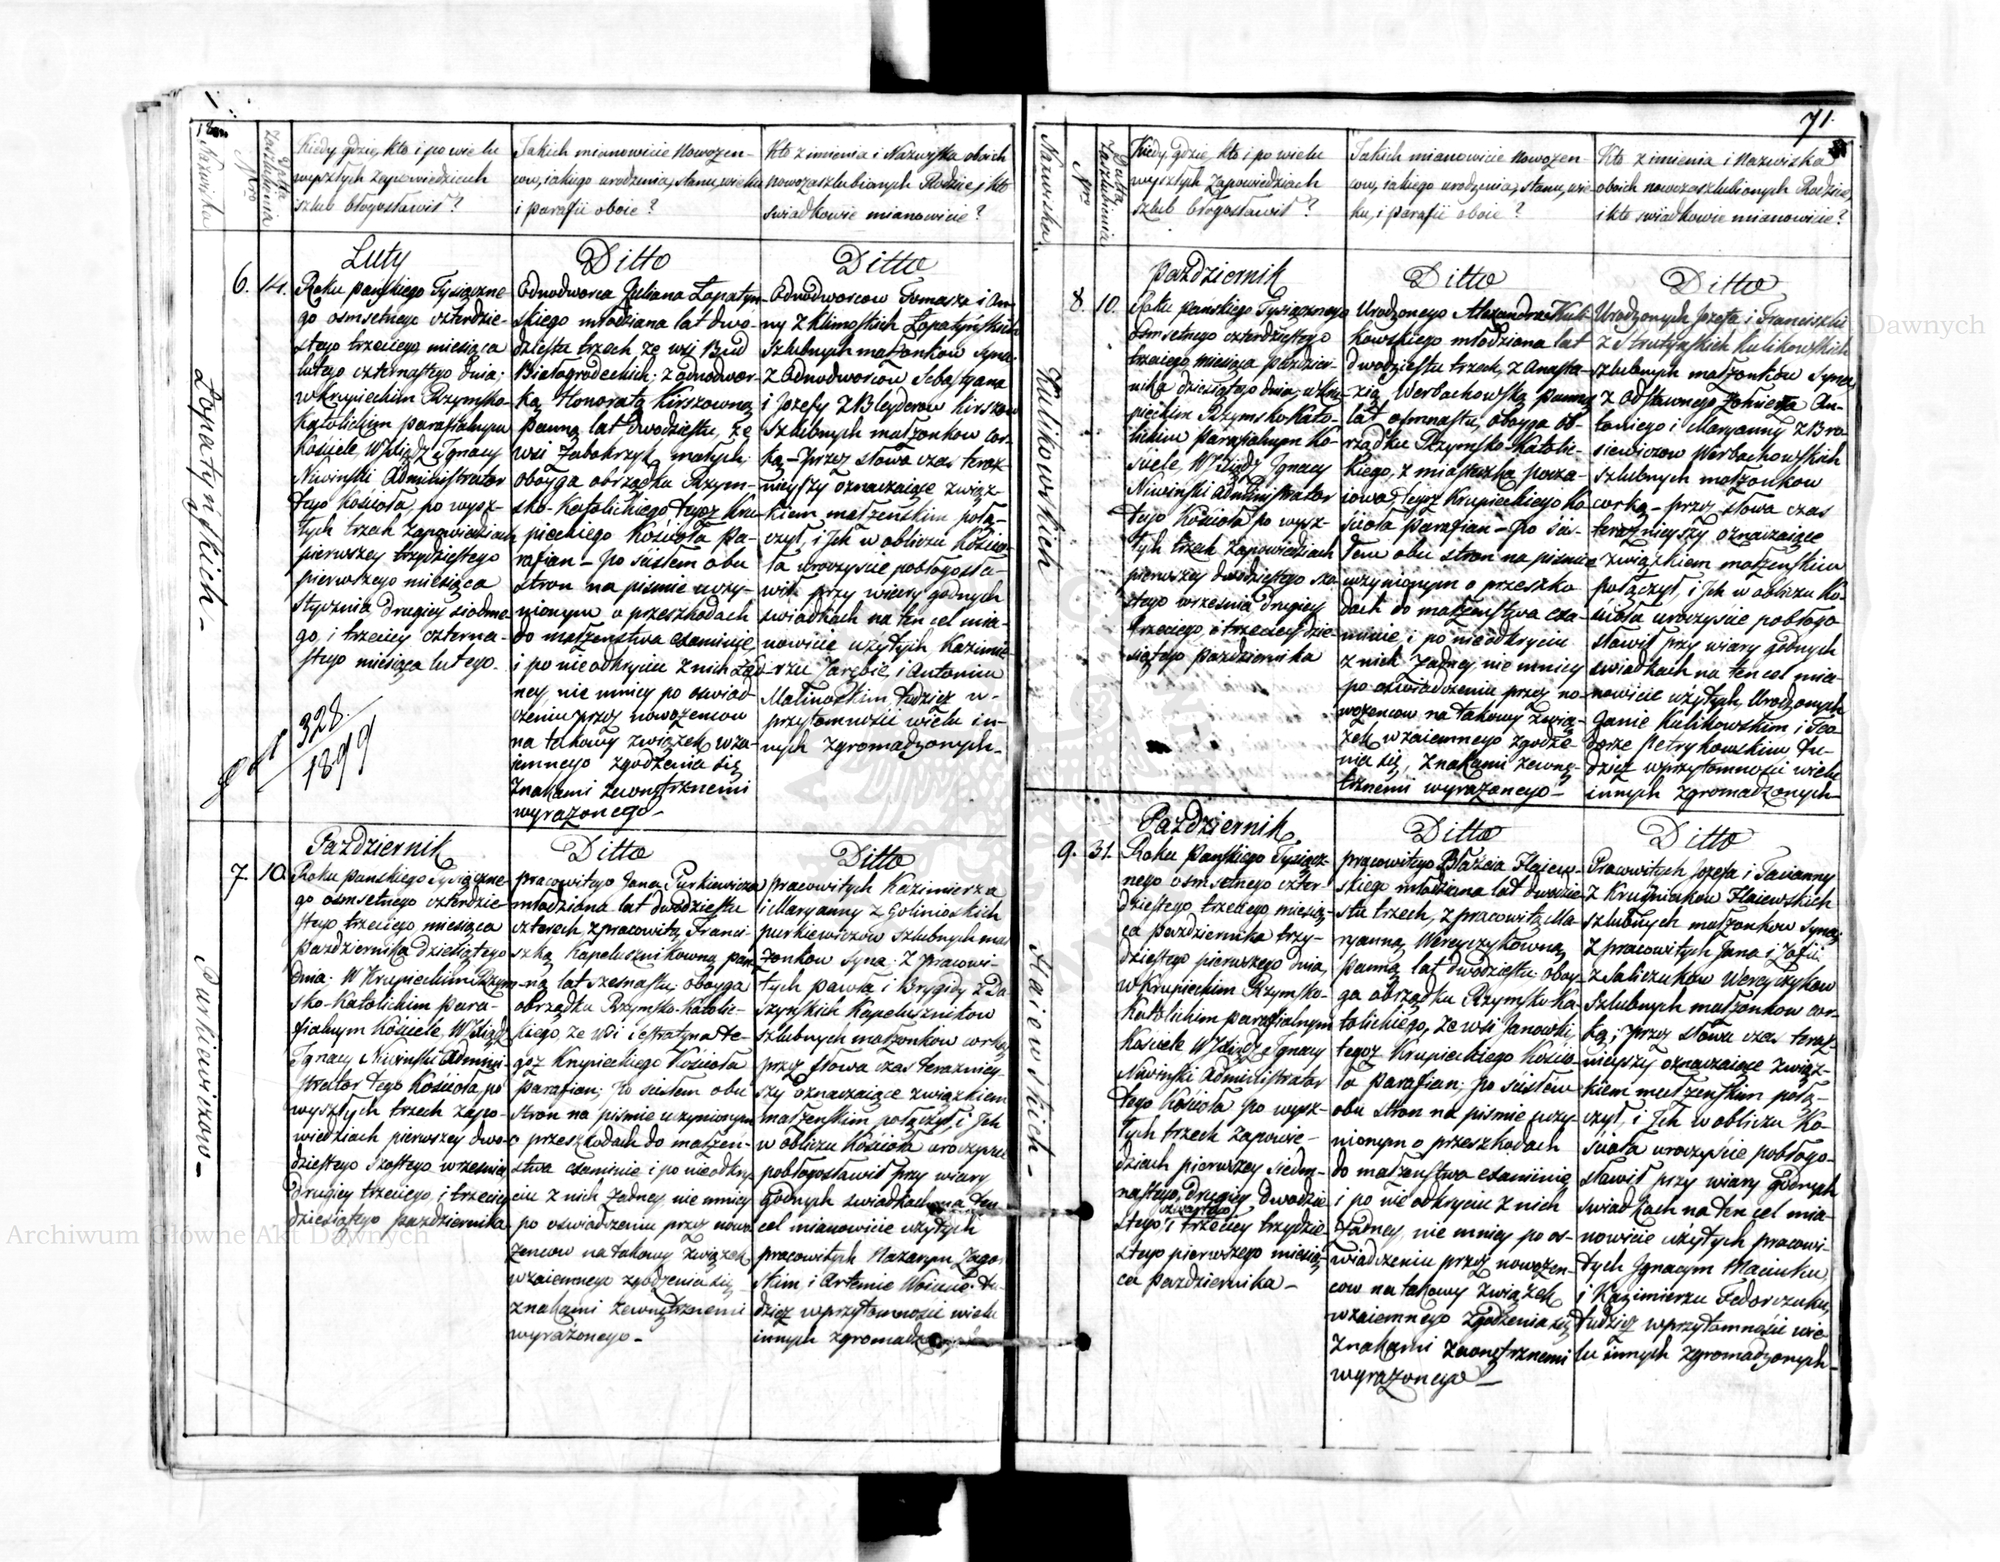 Nazwiska
Nro
Data Zaszlubienia
Kiedy gdzie, kto i po wielu
wyszłych zapowiedziach
szlub błogosławił?
Jakich mianowicie Nowożen-
cow, iakiego urodzenia, stanu, wieku
i parafii oboie?
Kto z imienia i Nazwiska oboich
Nowozaszlubionych Rodzice, i kto
swiadkowie mianowicie?
Łopatynskich -
6.
14.
Luty
Roku pańskiego Tysiączne-
go osmsetnego czterdzie-
stego trzeciego miesiąca
lutego czternastego dnia;
w Krupieckim Rzymsko-
Katolickim parafialnym
Kościele, W Xiądz Ignacy
Niwiński Administrator
tego Kościoła, po wysz-
łych trzech Zapowiedziach
pierwszey trzydziestego
pierwszego miesiąca
stycznia drugiey siodme-
go, i trzeciey czterna-
stego miesiąca lutego.
328
1899
Ditto
Odnodworca Juliana Łopatyn-
skiego młodziana lat dwu-
dziestu trzech ze wsi Bud
Białogrodeckich; z odnodwor-
ką Honoratą Kirszowną
panną lat dwudziestu, ze
wsi Zabokrzyk małych;
oboyga obrządku Rzym-
sko-Katolickiego tegoż Kru-
pieckiego Kościoła Pa-
rafian - Po ścisłem obu
stron na pismie uczy-
nionym o przeszkodach
do małżeństwa examinie,
i po nieodkryciu z nich żad-
ney nie mniey po oswiad-
czeniu przez nowożencow
na takowy związek wza-
iemnego zgodzenia się
Znakami zewnętrznemi
wyrażonego -
Ditto
Odnodworcow Tomasza i An-
ny z Klimoskich Łopatyńskich
Szlubnych małżonkow Syna;
Z Odnodworcow Sebastyana
i Jozefy z Bleyderow Kirszow
Szlubnych małżonkow cor-
ką - Przez słowa czas teraz-
nieyszy oznaczaiące związ-
kiem małżenskim połą-
czył, i Jch w obliczu Kościo-
ła uroczyscie pobłogosła-
wił przy wiary godnych
swiadkach na ten cel mia-
nowicie użytych Kazimie-
rzu Jarębie, i Antonim
Malinoskim tudzież w-
przytomnosci wielu in-
nych zgromadzonych -
Purkiewiczow -
7.
10
Pazdziernik
Roku Panskiego Tysiączne-
go osmsetnego czterdzie-
stego trzeciego miesiąca
Pazdziernika dziesiątego
dnia; W Krupieckim Rzym-
sko-Katolickim para-
fialnym Kościele, W Xiądz
Ignacy Niwiński Admini-
strator tego Kościoła, po
wyszłych trzech zapo-
wiedziach pierwszey dwu-
dziestego szostego wrzesnia,
drugiey trzeciego, i trzeciey
dziesiątego pazdziernika
Ditto
Pracowitego Jana Purkiewicza
młodziana lat dwudziestu
czterech, z pracowitą Franci-
szką Kapelusznikowną pan-
ną lat szesnastu; oboyga
obrządku Rzymsko-Katolic-
kiego, ze wsi Cestratyna te-
goż Krupieckiego Kościoła
Parafian; Po ścisłem obu
stron na pismie uczynionym
o przeszkodach do małżeń-
stwa examinie i po nieodkry-
ciu z nich żadney, nie mniey
po oswiadczeniu przez nowo-
żencow na takowy związek
wzaiemnego zgodzenia się
znakami zewnętrznemi
wyrażonego -
Ditto
Pracowitych Kazimierza
i Maryanny z Golinioskich
Purkiewiczow Szlubnych mał-
żonkow Syna; z Pracowi-
tych Pawła i Brygidy z Da-
szynskich Kapelusznikow
szlubnych małżonkow corką
przez słowa czas teraźniey-
szy oznaczaiące związkiem
małżenskim połączył i Jch
w obliczu Kościoła uroczyscie
pobłogosławił przy wiary
godnych swiadkach na ten
cel mianowicie użytych
pracowitych Nazarym Zagor-
skim, i Artemie tu-
dzież w przytomnosci wielu
innych zgromadzonych
71.
Nazwiska
Nro
Data Zaszlubienia
Kiedy, gdzie, kto i po wielu
wyszłych Zapowiedziach
szlub błogosławił?
Jakich mianowicie nowożen-
cow, iakiego urodzenia, stanu, wie-
ku, i parafii oboie?
Kto z imienia i Nazwiska
oboich nowozaszlubionych Rodzice,
i kto swiadkowie mianowicie?
Kulikowskich
8
10.
Pazdziernik
Roku pańskiego Tysiącznego
osmsetnego czterdziestego
trzeciego miesiąca Pazdzier-
nika dziesiątego dnia, w Kru-
pieckim Rzymsko Kato-
lickim Parafialnym Ko-
ściele, W Xiądz Ignacy
Niwiński Administrator
tego Kościoła po wysz-
łych trzech Zapowiedziach
pierwszey dwudziestego szo-
stego wrzesnia drugiey
trzeciego, i trzeciey dzie-
siątego pazdziernika
Ditto
Urodzonego Alexandra Kuli-
kowskiego młodziana lat
dwudziestu trzech, z Anasta-
zią Werbachowską panną
lat osmnastu, oboyga ob-
rządku Rzymsko-Katolic-
kiego, z miasteczka
tegoż Krupieckiego Ko-
ścioła Parafian - Po ści-
słem obu stron na pismie
uczynionym o przeszko-
dach do małżenstwa exa-
minie, i po nieodkryciu
z nich żadney, nie mniey
po oswiadczeniu przez no-
wożencow na takowy zwią-
zek wzaiemnego zgodze-
nia się, znakami zewnę-
trznemi wyrażonego -
Ditto
Urodzonych Jozefa i Franciszki
z Strutyńskich Kulikowskich
szlubnych małżonkow Syna,
z Odstawnego Żołnierza An-
toniego i Maryanny z Bro-
siewiczow Werbachowskich
szlubnych małżonkow
corką - przez słowa czas
teraźnieyszy oznaczaiące
związkiem małżenskim
połączył, i Jch w obliczu Ko-
ścioła uroczyscie pobłogo-
sławił przy wiary godnych
swiadkach na ten cel mia-
nowicie użytych, Urodzonych
Janie Kulikowskim i Teo-
dorze Petrykowskim tu-
dzież w przytomnosci wielu
innych zgromadzonych -
Hajewskich -
9.
31.
Pazdziernik
Roku Pańskiego Tysiącz-
nego osmsetnego czter-
dziestego trzeciego, miesią-
ca Pazdziernika trzy-
dziestego pierwszego dnia,
w Krupieckim Rzymsko-
Katolickim Parafialnym
Kościele W Xiądz Ignacy
Niwiński Administrator
tego Kościoła po wysz-
łych trzech Zapowie-
dziach pierwszey siedm-
nastego, drugiey dwudzie-
czwartego
stego, i trzeciey trzydzie-
stego pierwszego miesią-
ca Pazdziernika -
Ditto
pracowitego Błażeia Hajew-
skiego młodziana lat dwudzie-
stu trzech, z pracowitą Ma-
ryanną Wereyczykowną
panną lat dwudziestu, oboy-
ga obrządku Rzymsko Ka-
tolickiego, ze wsi Janowki,
tegoż Krupieckiego Kościo-
ła Parafian; Po ścisłem
obu stron na pismie uczy-
nionym o przeszkodach
do małżenstwa examinie
i po nie odkryciu z nich
żadney, nie mniey po os-
wiadczeniu przez nowożen-
cow na takowy związek
wzaiemnego zgodzenia się
Znakami zewnętrznemi
wyrażonego -
Ditto
Pracowitych Jozefa i Tacianny
z Krupniakow Hajewskich
szlubnych małżonkow Syna;
z pracowitych Jana i Zofii
z Saliczukow Wereyczykow
Szlubnych małżonkow cor-
ką; Przez słowa czas teraz-
nieyszy oznaczaiące związ-
kiem małżenskim połą-
czył, i Jch w obliczu Ko-
ścioła uroczyście pobłogo-
sławił przy wiary godnych
swiadkach na ten cel mia-
nowicie użytych pracowi-
tych Ignacym Maciuku,
i Kazimierzu Fedorczuku,
tudzież w przytomności wie-
lu innych zgromadzonych -
Archiwum Główne Akt Dawnych
Archiwum Główne Akt Dawnych